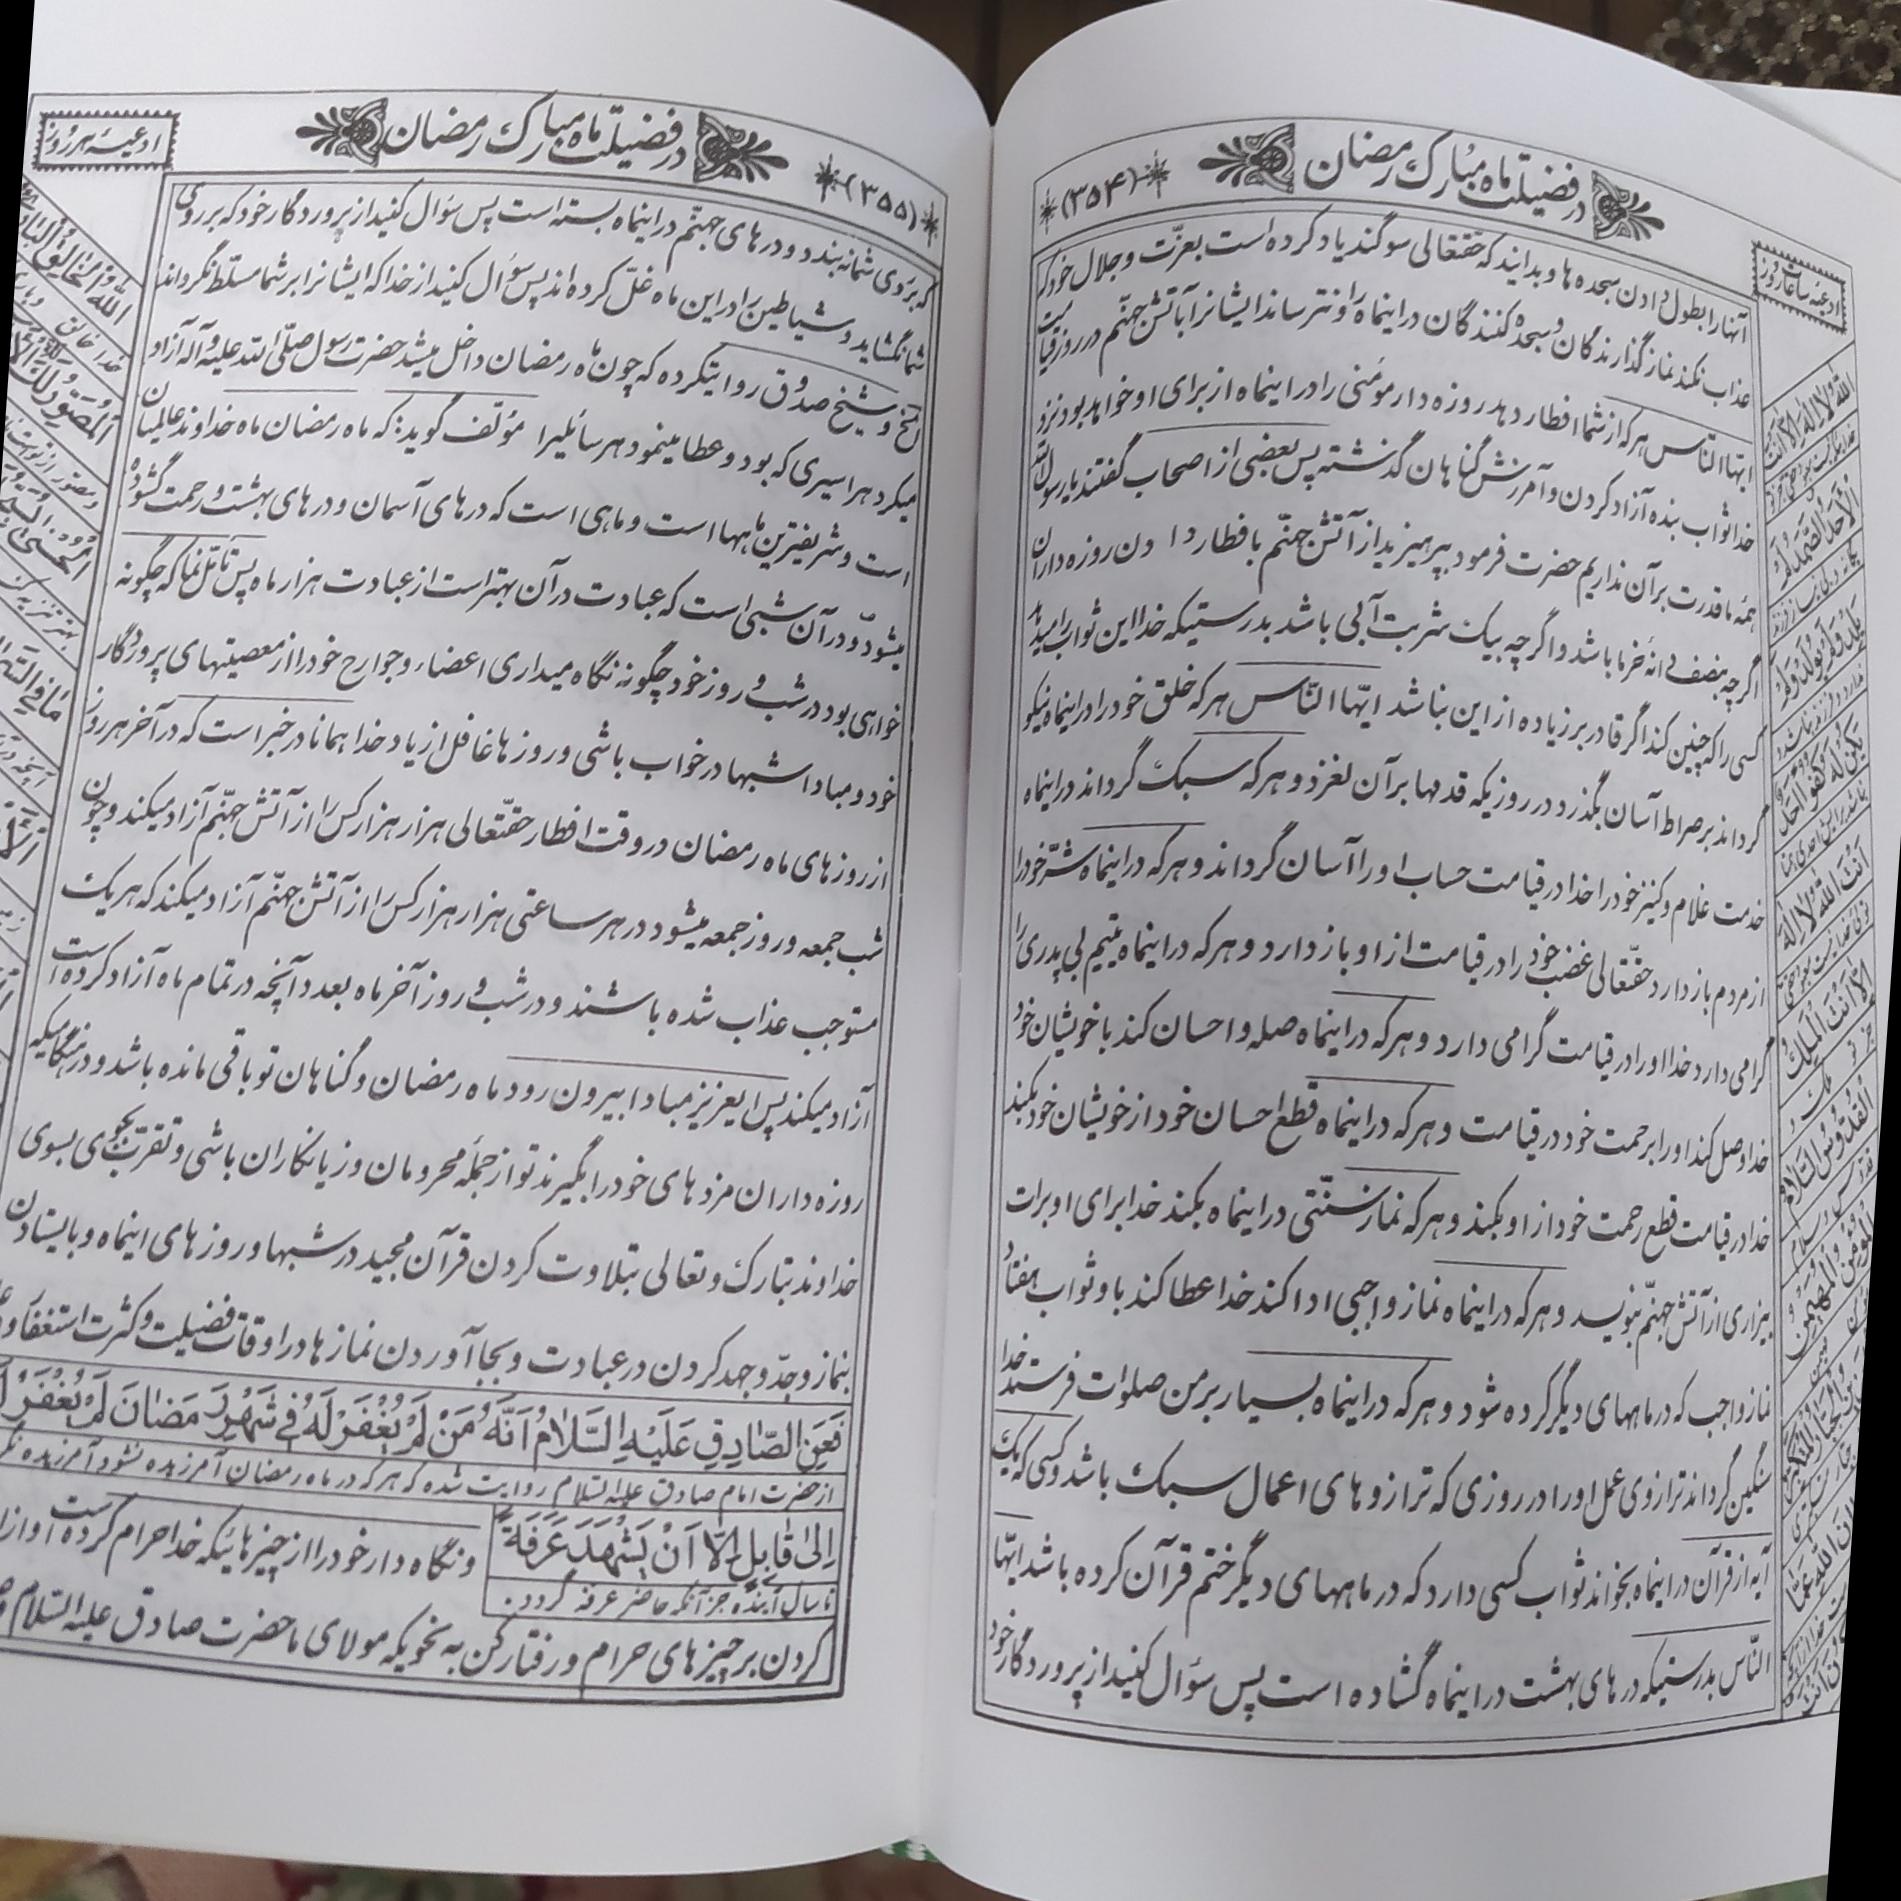 در فضیلت ماه مبارک رمضان
(۳۵۴)
ادعیه ساعات روز
آنها را بطول دادن سجده ها و بدانید که حقتعالی سوگند یاد کرده است بعزّت و جلال خود که
عذاب نکند نماز گذارندگان و سجده کنندگان در اینماه را و نترساند ایشانرا بآتش جهنّم در روز قیامت
ایّها النّاس هر که از شما افطار دهد روزه دار مؤمنی را در اینماه از برای او خواهد بود نزد
خدا ثواب بنده آزاد کردن و آمرزش گناهان گذشته پس بعضی از اصحاب گفتند یا رسول الله
همۀ ما قدرت بر آن نداریم حضرت فرمود بپرهیزید از آتش جهنّم بافطار دادن روزه داران
اگر چه بنصف دانۀ خرما باشد و اگر چه بیک شربت آبی باشد بدرستیکه خدا این ثواب را میدهد
کسی را که چنین کند اگر قادر بر زیاده از این نباشد ایّها النّاس هر که خلق خود را در اینماه نیکو
گرداند بر صراط آسان بگذرد در روزیکه قدمها بر آن لغزد و هر که سبک گرداند در اینماه
خدمت غلام و کنیز خود را خدا در قیامت حساب او را آسان گرداند و هر که در اینماه شرّ خود را
از مردم باز دارد حقّتعالی غضب خود را در قیامت از او باز دارد و هر که در اینماه یتیم بی پدری را
گرامی دارد خدا او را در قیامت گرامی دارد و هر که در اینماه صله و احسان کند با خویشان خود
خدا وصل کند او را برحمت خود در قیامت و هر که در اینماه قطع احسان خود از خویشان خود بکند
خدا در قیامت قطع رحمت خود از او بکند و هر که نماز سنّتی در اینماه بکند خدا برای او برات
بیزاری از آتش جهنّم بنوید و هر که در اینماه نماز واجبی ادا کند خدا عطا کند باو ثواب هفتاد
نماز واجب که در ماههای دیگر کرده شود و هر که در اینماه بسیار بر من صلوات فرستد خدا
سنگین گرداند ترازوی عمل او را در روزی که ترازوهای اعمال سبک باشد و کسی که یک
آیه از قرآن در اینماه بخواند ثواب کسی دارد که در ماههای دیگر ختم قرآن کرده باشد ایّها
النّاس بدرستیکه درهای بهشت در اینماه گشاده است پس سؤال کنید از پروردگار خود
الله لا اله الا انت
الاحد الصمد لم
یلد و لم یولد و لم
یکن له کفوا احد
انت الله لا اله
الا انت الملک
القدوس السلام
المؤمن المهیمن
در فضیلت ماه مبارک رمضان
(۳۵۵)
ادعیۀ هر روز
که بر روی شما نه بندد و درهای جهنّم در اینماه بسته است پس سؤال کنید از پروردگار خود که بر روی
شما نگشاید و شیاطین را در این ماه غلّ کرده اند پس سؤال کنید از خدا که ایشانرا بر شما مسلّط نگرداند
الخ و شیخ صدوق روایتکرده که چون ماه رمضان داخل میشد حضرت رسول صلّی الله علیه و آله آزاد
میکرد هر اسیری که بود و عطا مینمود هر سائلیرا مؤلّف گوید: که ماه رمضان ماه خداوند عالمیان
است و شریفترین ماهها است و ماهی است که درهای آسمان و درهای بهشت و رحمت گشوده
میشود و در آن شبی است که عبادت در آن بهتر است از عبادت هزار ماه پس تأمّل نما که چگونه
خواهی بود در شب و روز خود چگونه نگاه میداری اعضاء و جوارح خود را از معصیتهای پروردگار
خود و مبادا شبها در خواب باشی و روزها غافل از یاد خدا همانا در خبر است که در آخر هر روز
از روزهای ماه رمضان در وقت افطار حقّتعالی هزار هزار کس را از آتش جهنّم آزاد میکند و چون
شب جمعه و روز جمعه میشود در هر ساعتی هزار هزار کس را از آتش جهنّم آزاد میکند که هر یک
مستوجب عذاب شده باشند و در شب و روز آخر ماه بعدد آنچه در تمام ماه آزاد کرده است
آزاد میکند پس ایعزیز مبادا بیرون رود ماه رمضان و گناهان تو باقی مانده باشد و در هنگامیکه
روزه داران مزدهای خود را بگیرند تو از جملۀ محرومان و زیانکاران باشی و تقرّب بجوی بسوی
خداوند تبارک و تعالی بتلاوت کردن قرآن مجید در شبها و روزهای اینماه و بایستادن
بنماز و جدّ و جهد کردن در عبادت و بجا آوردن نمازها در اوقات فضیلت و کثرت استغفار و
فَعَنِ الصّادِقِ عَلَیْهِ السَّلامُ اَنَّهُ مَنْ لَمْ یُغْفَرْ لَهُ فی شَهْرِ رَمَضانَ لَمْ یُغْفَرْ لَهُ
از حضرت امام صادق علیه السلام روایت شده که هر که در ماه رمضان آمرزیده نشود آمرزیده
اِلی قابِلٍ اِلّا اَنْ یَشْهَدَ عَرَفَةَ
تا سال آینده جز آنکه حاضر عرفه گردد.
و نگاه دار خود را از چیزهائیکه خدا حرام کرده است و از
کردن بر چیزهای حرام و رفتار کن به نحویکه مولای ما حضرت صادق علیه السلام